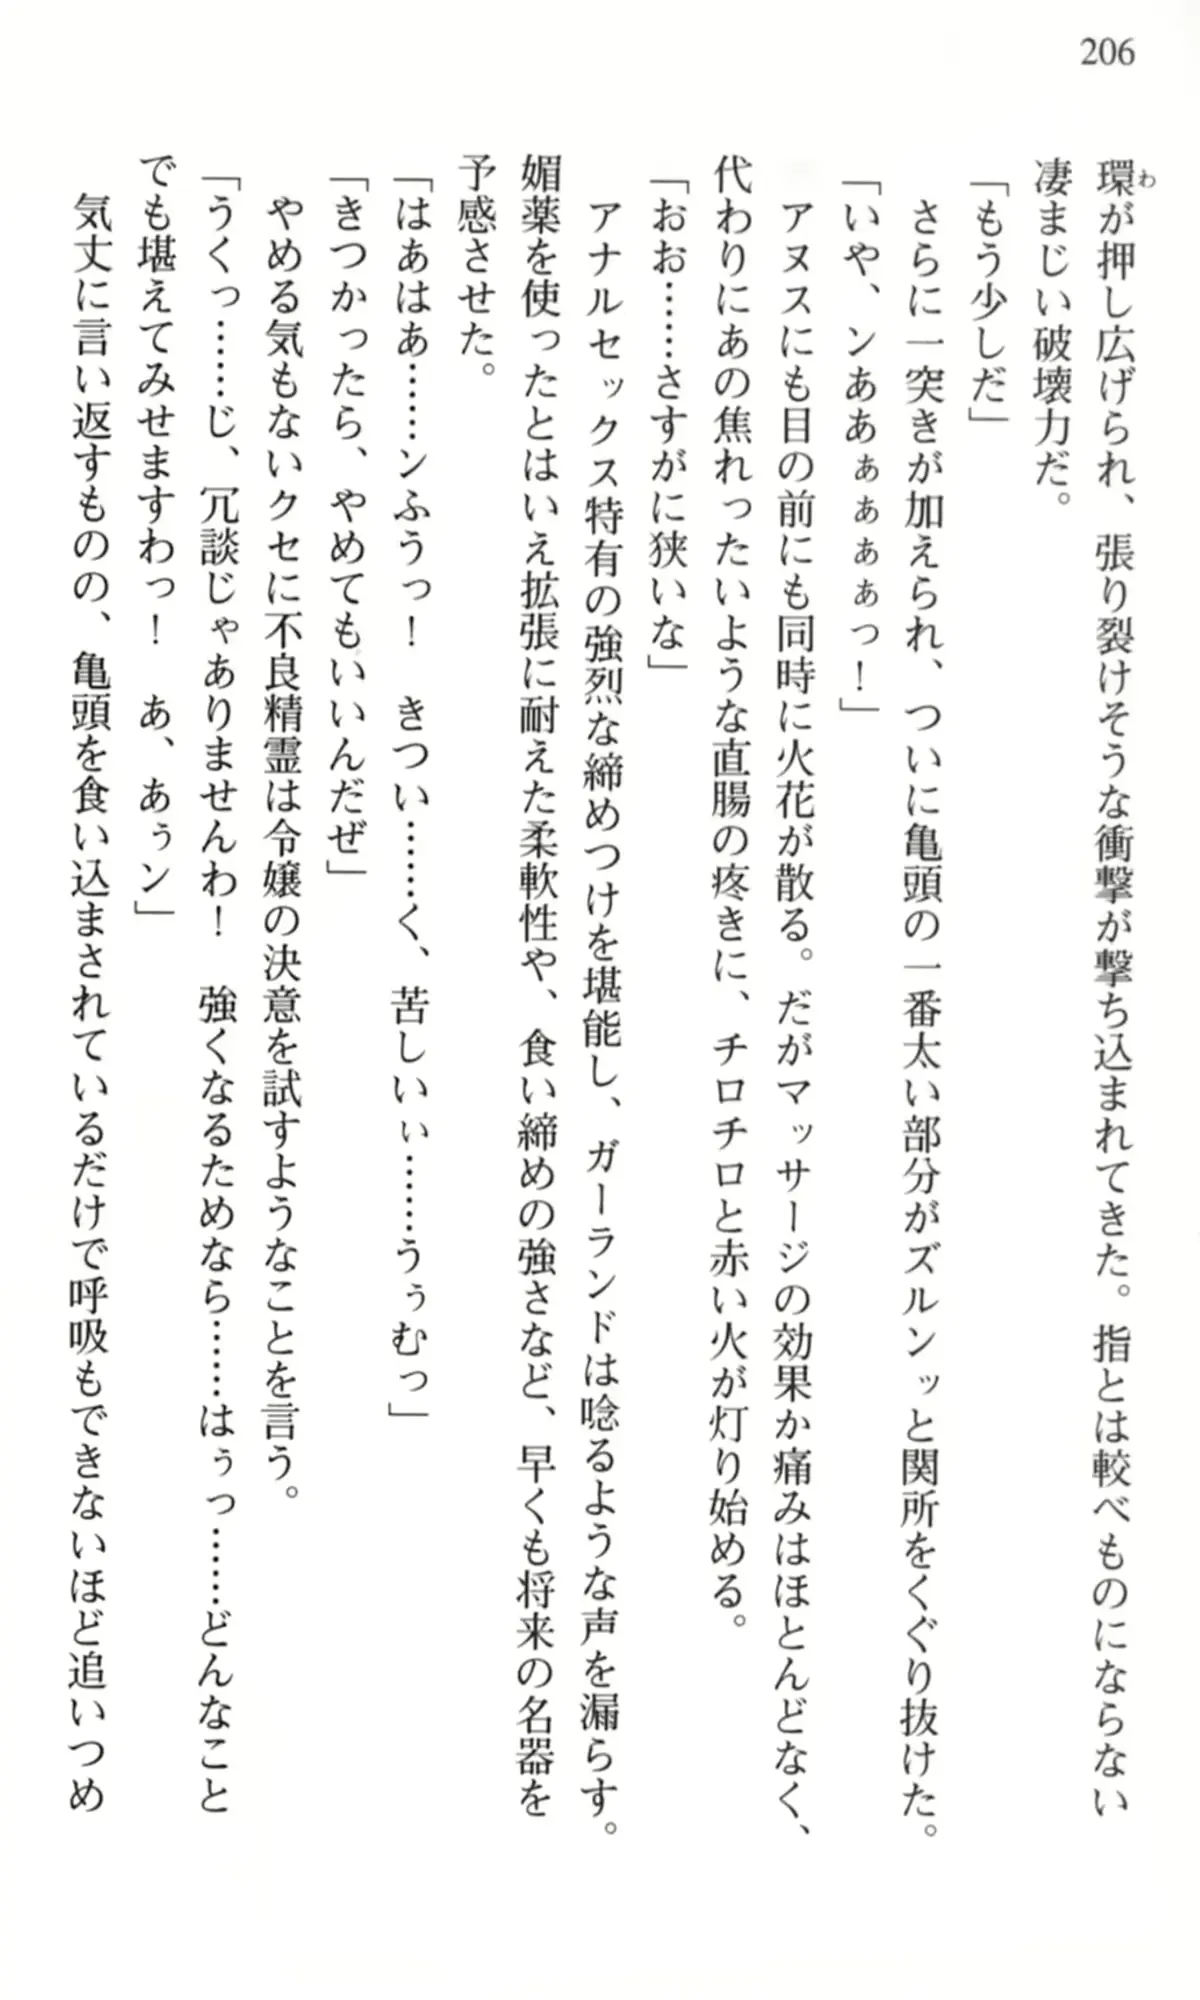 206
環が押し広げられ、張り裂けそうな衝撃が撃ち込まれてきた。指とは較べものにならない
凄まじい破壊力だ。
「もう少しだ」
さらに一突きが加えられ、ついに亀頭の一番太い部分がズルンッと関所をくぐり抜けた。
「いや、ンあぁぁぁぁっ！」
アヌスにも目の前にも同時に火花が散る。だがマッサージの効果か痛みはほとんどなく、
代わりにあの焦れったいような直腸の疼きに、チロチロと赤い火が灯り始める。
「おお……さすがに狭いな」
アナルセックス特有の強烈な締めつけを堪能し、ガーランドは唸るような声を漏らす。
媚薬を使ったとはいえ拡張に耐えた柔軟性や、食い締めの強さなど、早くも将来の名器を
予感させた。
「はあはあ……ンふうっ！　きつい……く、苦しいぃ……うぅむっ」
「きつかったら、やめてもいいんだぜ」
やめる気もないクセに不良精霊は令嬢の決意を試すようなことを言う。
「うくっ……じ、冗談じゃありませんわ！　強くなるためなら……はぅっ……どんなこと
でも堪えてみせますわっ！　あ、あぅン」
気丈に言い返すものの、亀頭を食い込まされているだけで呼吸もできないほど追いつめ